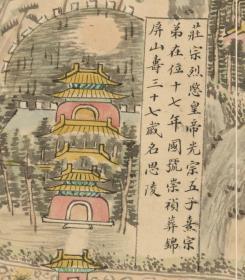 莊宗烈愍皇帝光宗五子熹宗
弟在位十七年國號崇禎葬錦
屏山壽三十七歲名思陵